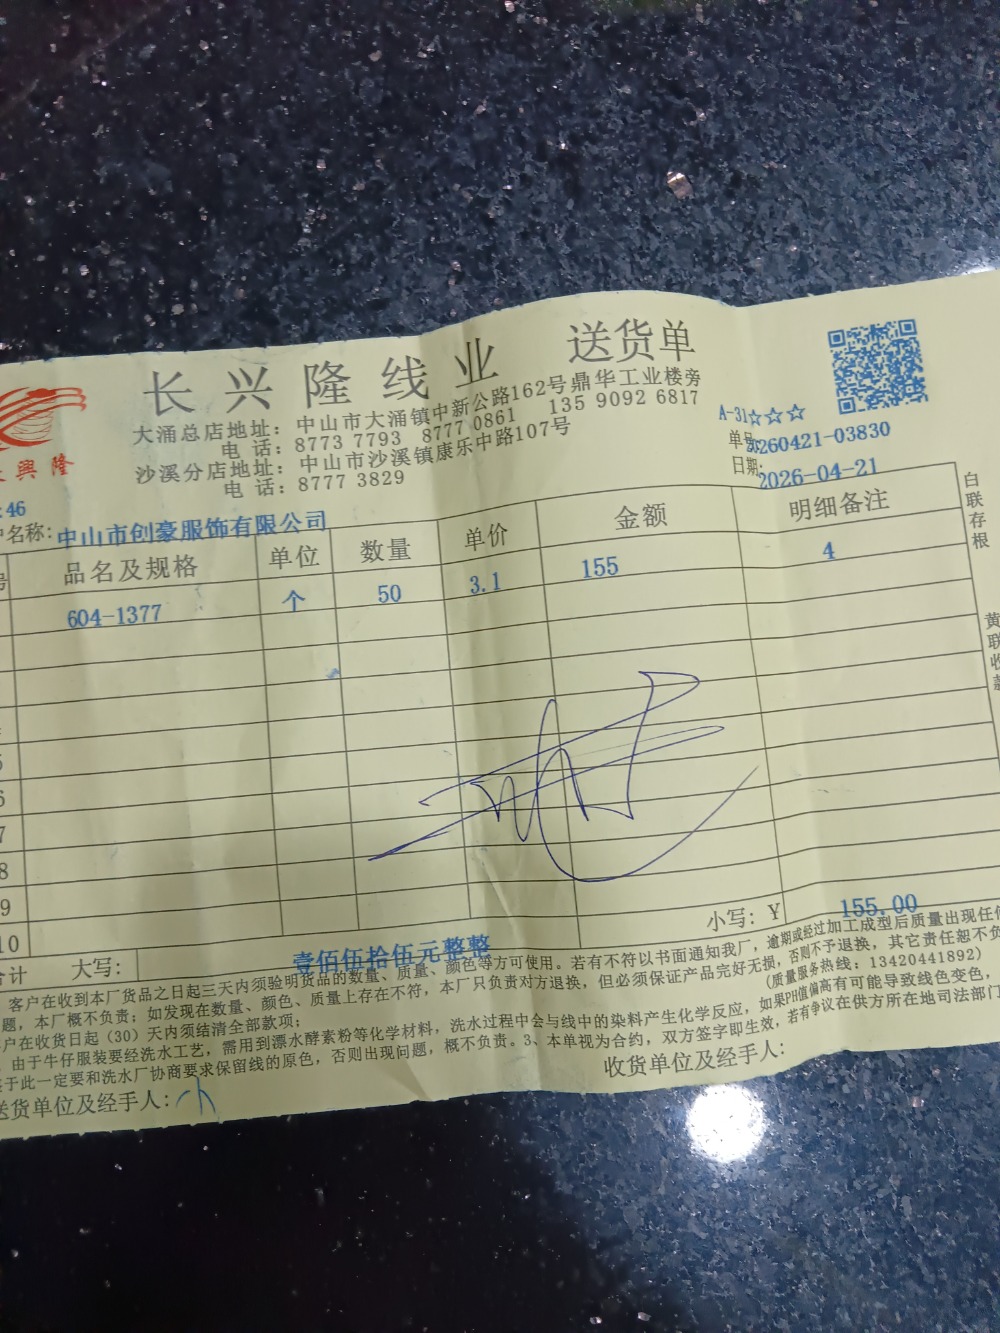 长兴隆线业 送货单
大涌总店地址：中山市大涌镇中新公路162号鼎华工业楼旁
电 话：8773 7793 8777 0861 135 9092 6817
沙溪分店地址：中山市沙溪镇康乐中路107号
电 话：8777 3829
興隆
A-31☆☆☆
单号:20260421-03830
日期:2026-04-21
:46
名称：中山市创豪服饰有限公司
品名及规格 单位 数量 单价 金额 明细备注
604-1377 个 50 3.1 155 4
5
6
7
8
9
10
合计 大写： 壹佰伍拾伍元整整 小写：￥ 155.00
白联存根
黄联收款
客户在收到本厂货品之日起三天内须验明货品的数量、质量、颜色等方可使用。若有不符以书面通知我厂，逾期或经过加工成型后质量出现任何
题，本厂概不负责；如发现在数量、颜色、质量上存在不符，本厂只负责对方退换，但必须保证产品完好无损，否则不予退换，其它责任恕不负
户在收货日起（30）天内须结清全部款项； （质量服务热线：13420441892）
由于牛仔服装要经洗水工艺，需用到漂水酵素粉等化学材料，洗水过程中会与线中的染料产生化学反应，如果PH值偏高有可能导致线色变色，
于此一定要和洗水厂协商要求保留线的原色，否则出现问题，概不负责。3、本单视为合约，双方签字即生效，若有争议在供方所在地司法部门
送货单位及经手人： 收货单位及经手人：